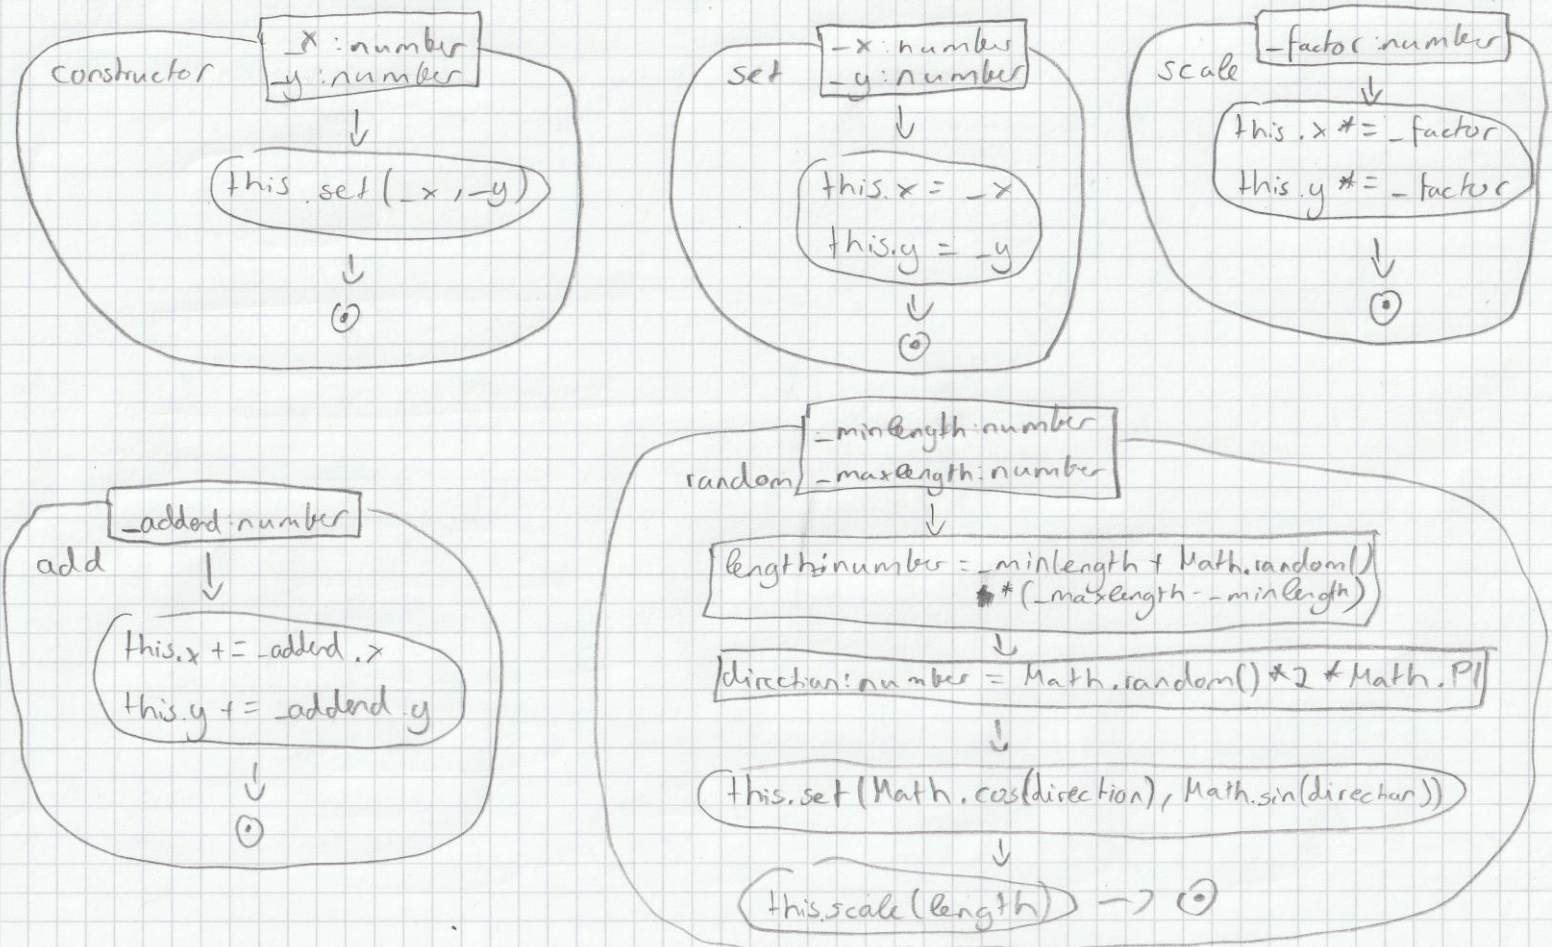 constructor
_x : number
_y : number
this.set(_x, _y)
set
_x : number
_y : number
this.x = _x
this.y = _y
scale
_factor : number
this.x *= _factor
this.y *= _factor
add
_addend : number
this.x += _addend.x
this.y += _addend.y
random
_minlength : number
_maxlength : number
length : number = _minlength + Math.random()
* (_maxlength - _minlength)
direction : number = Math.random() * 2 * Math.PI
this.set(Math.cos(direction), Math.sin(direction))
this.scale(length)